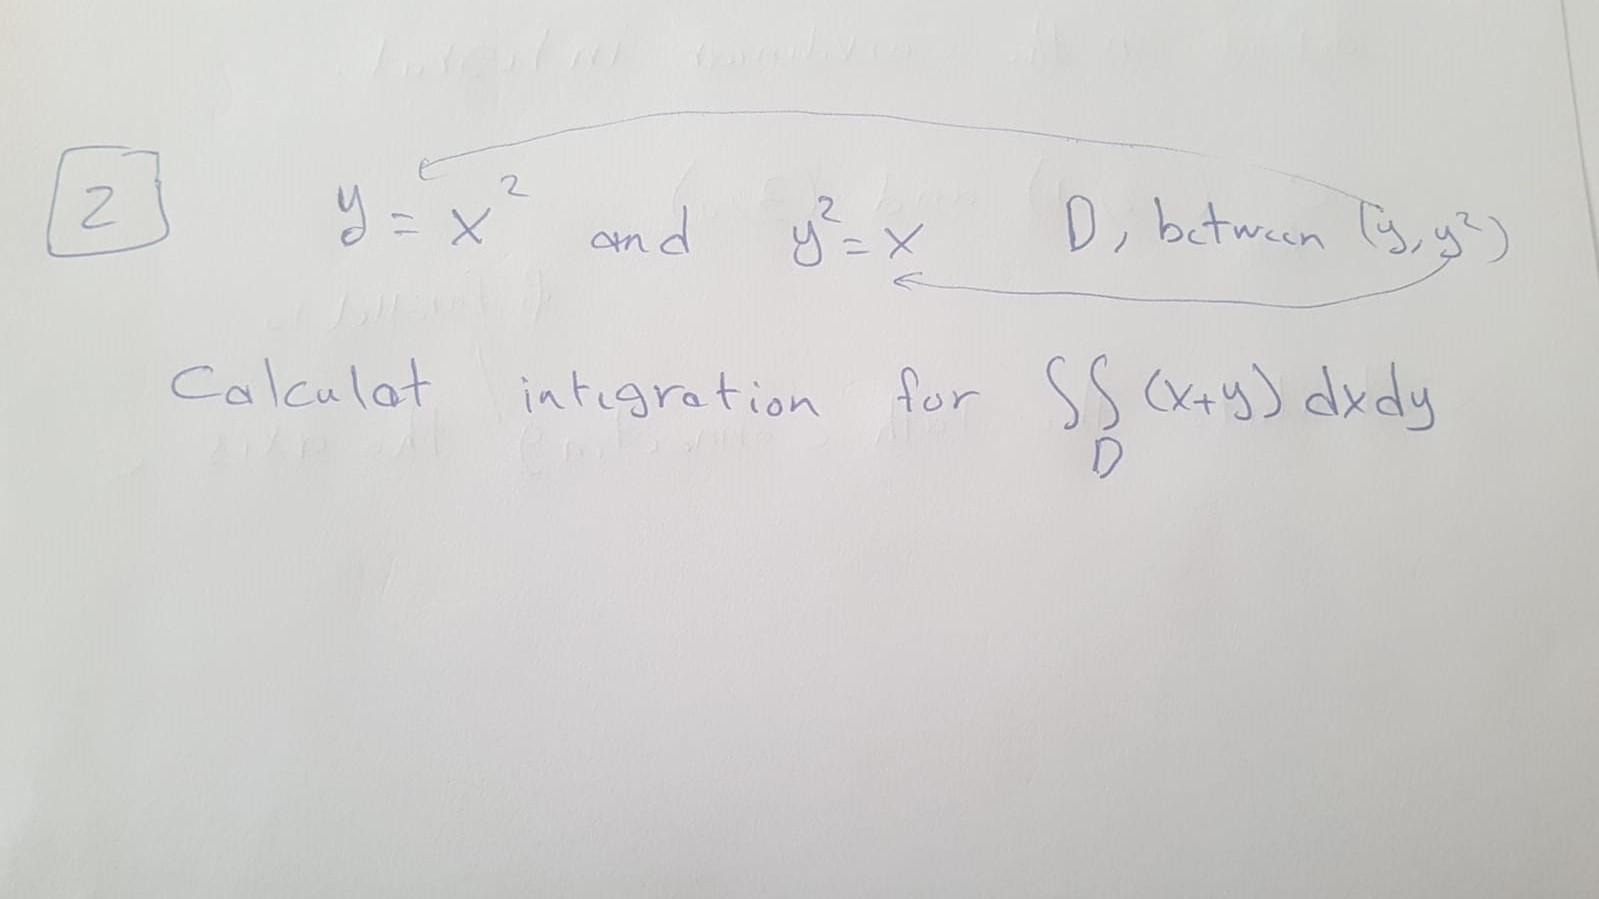 2 y = x² and y² = x D, between (y, y²)
Calculat integration for ∫∫ (x+y) dxdy
D